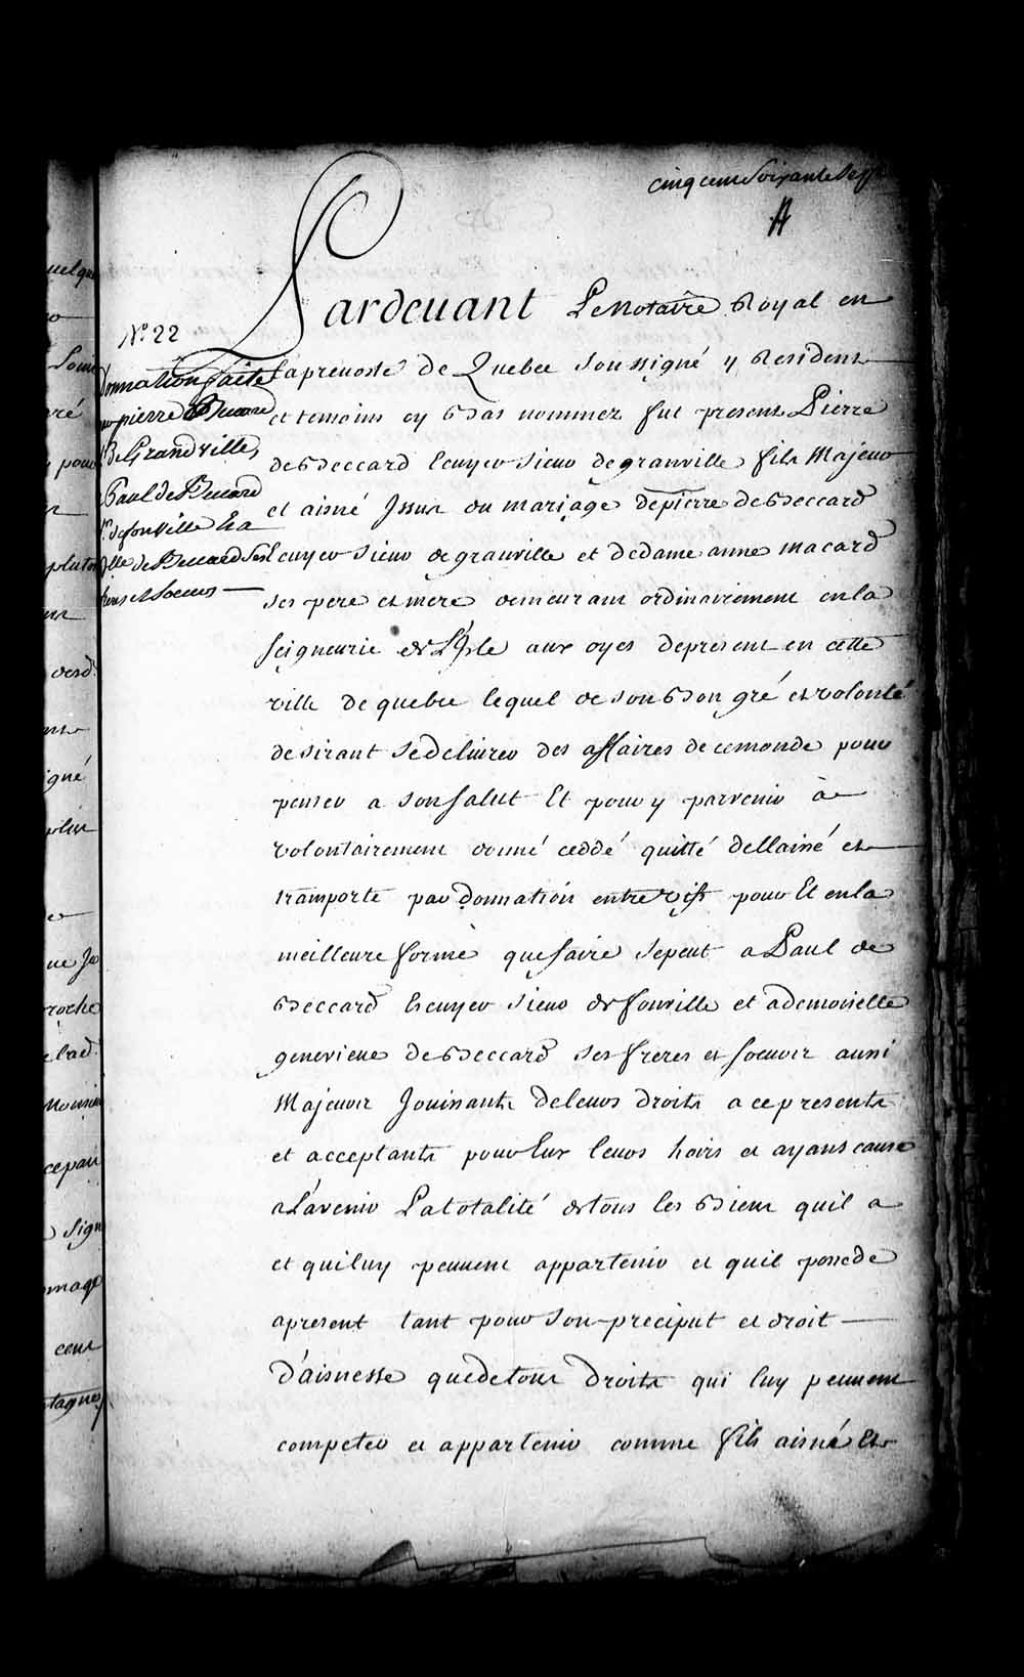 cinq cent Soixante Sept
N.º 22
donnation faite
par pierre Becard
S.r de Grandville,
a Paul de Becard
S.r de fonville Et a
d.lle de Becard Ses
freres et Soeurs
Pardeuant Le Notaire Royal en
la preuosté de Quebec soussigné y Resident
et temoins cy Bas nommez fut present Pierre
de Beccard Ecuyer Sieur de granville fils Majeur
et aisné Issus du mariage de pierre de Beccard
Ecuyer Sieur de granville et de dame anne macard
ses pere et mere demeurant ordinairement en la
seigneurie de L'Isle aux oyes de present en cette
ville de quebec lequel de son Bon gré et volonté
desirant se deliurer des affaires de ce monde pour
penser a son salut Et pour y parvenir à
volontairement donné ceddé quitté dellaissé et
transporte par donnation entre vifs pour Et en la
meilleure forme que faire se peut a Paul de
Beccard Ecuyer Sieur de fonville et a demoiselle
genevieue de Beccard ses freres et soeur aussi
Majeurs Jouissants de leurs droits a ce presents
et acceptants pour Eux leurs hoirs et ayans cause
a L'avenir La totalité de tous les Biens quil a
et qui luy peuuent appartenir et quil possede
a present tant pour son preciput et droit
d'aisnesse que de tous droits qui luy peuuent
competer et appartenir comme fils aisné Et